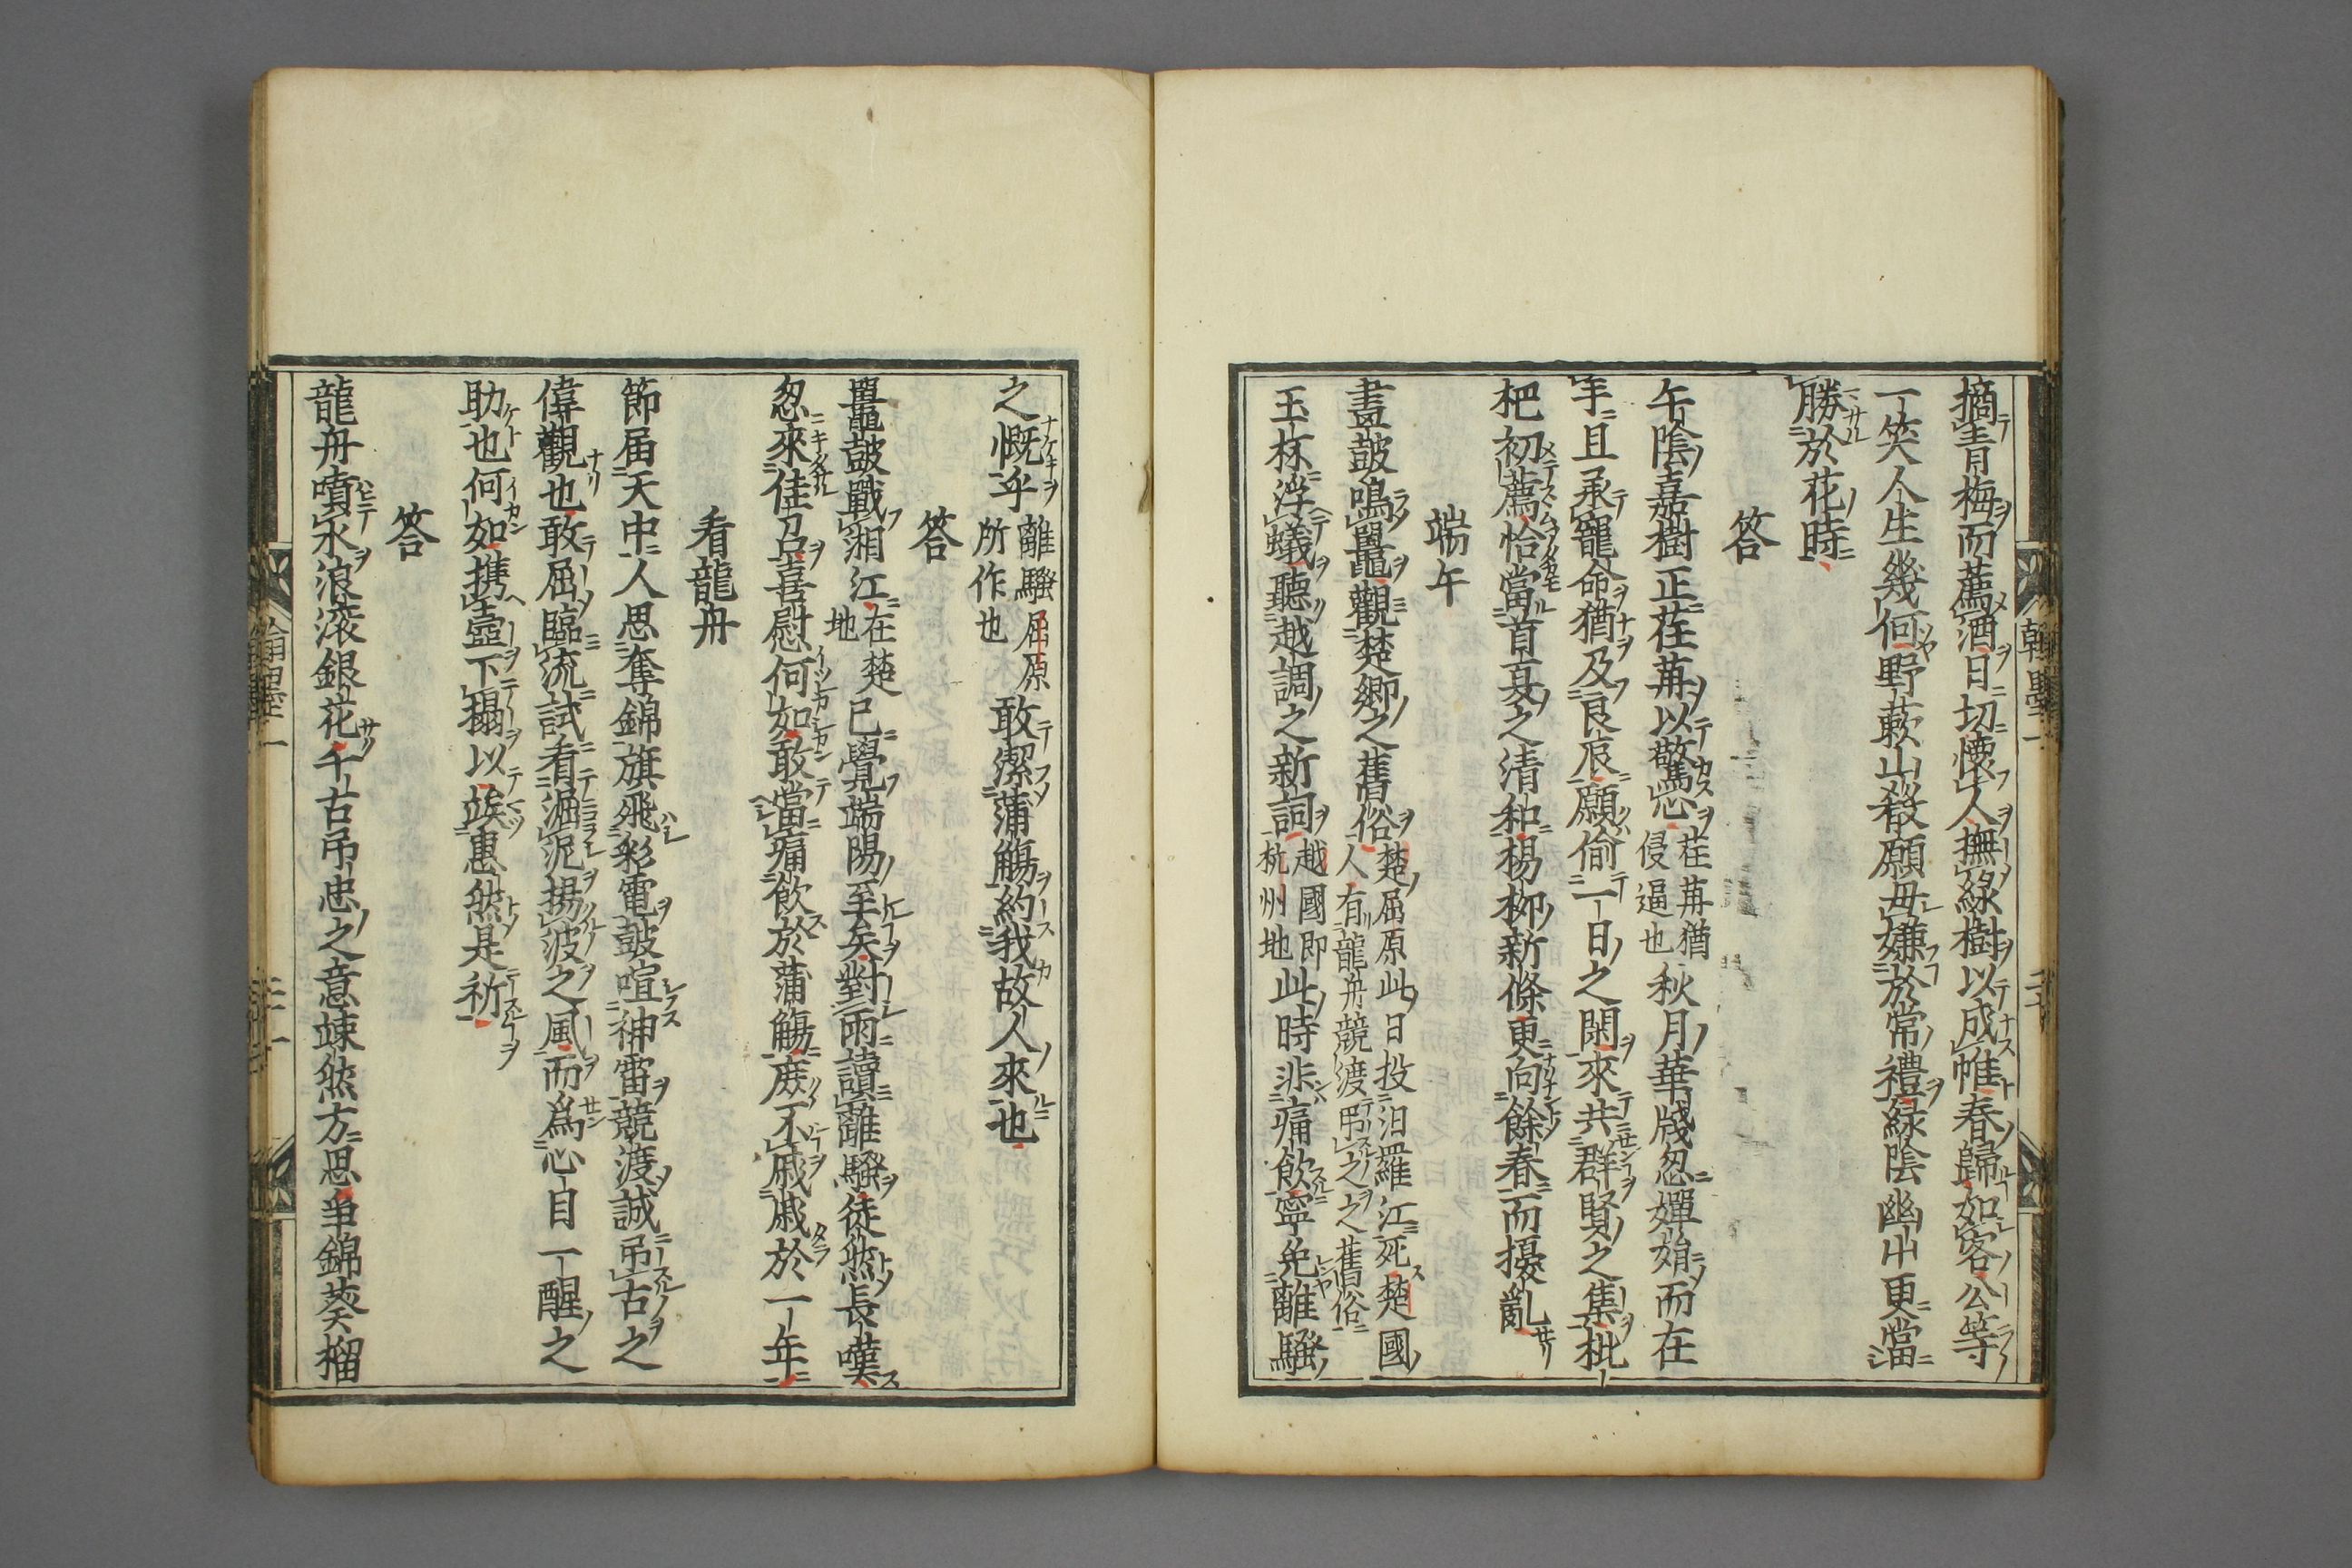 摘青梅而薦酒日切懷人撫綠樹以成帷春歸如客公等
一笑人生幾何野蔌山殽願毋嫌於常禮綠陰幽草更當
勝於花時
答
午陰嘉樹正荏苒以驚心荏苒猶侵逼也秋月華牋忽嬋娟而在
手且承寵命猶及良辰願偷一日之閑來共群賢之集枇
杷初薦恰當首夏之清和楊柳新條更向餘春而擾亂
端午
畫鼓鳴鼉觀楚鄉之舊俗楚屈原此日投汨羅江死楚國人有龍舟競渡吊之之舊俗
玉杯浮蟻聽越調之新詞越國即杭州地此時非痛飲寧免離騷
之慨乎離騷屈原所作也敢潔蒲觴約我故人來也
答
鼉鼓戰湘江在楚地已覺端陽至矣對雨讀離騷徒然長嘆
忽來佳召喜慰何如敢當痛飲於蒲觴庶不戚戚於一年
看龍舟
節届天中人思奪錦旗飛彩電鼓喧神雷競渡誠吊古之
偉觀也敢屈臨流試看淈泥揚波之風而爲心目一醒之
助也何如携壺下榻以竢惠然是祈
答
龍舟噴水浪滚銀花千古吊忠之意竦然方思爭錦葵榴
翰墨一
二十
翰墨一
二十一